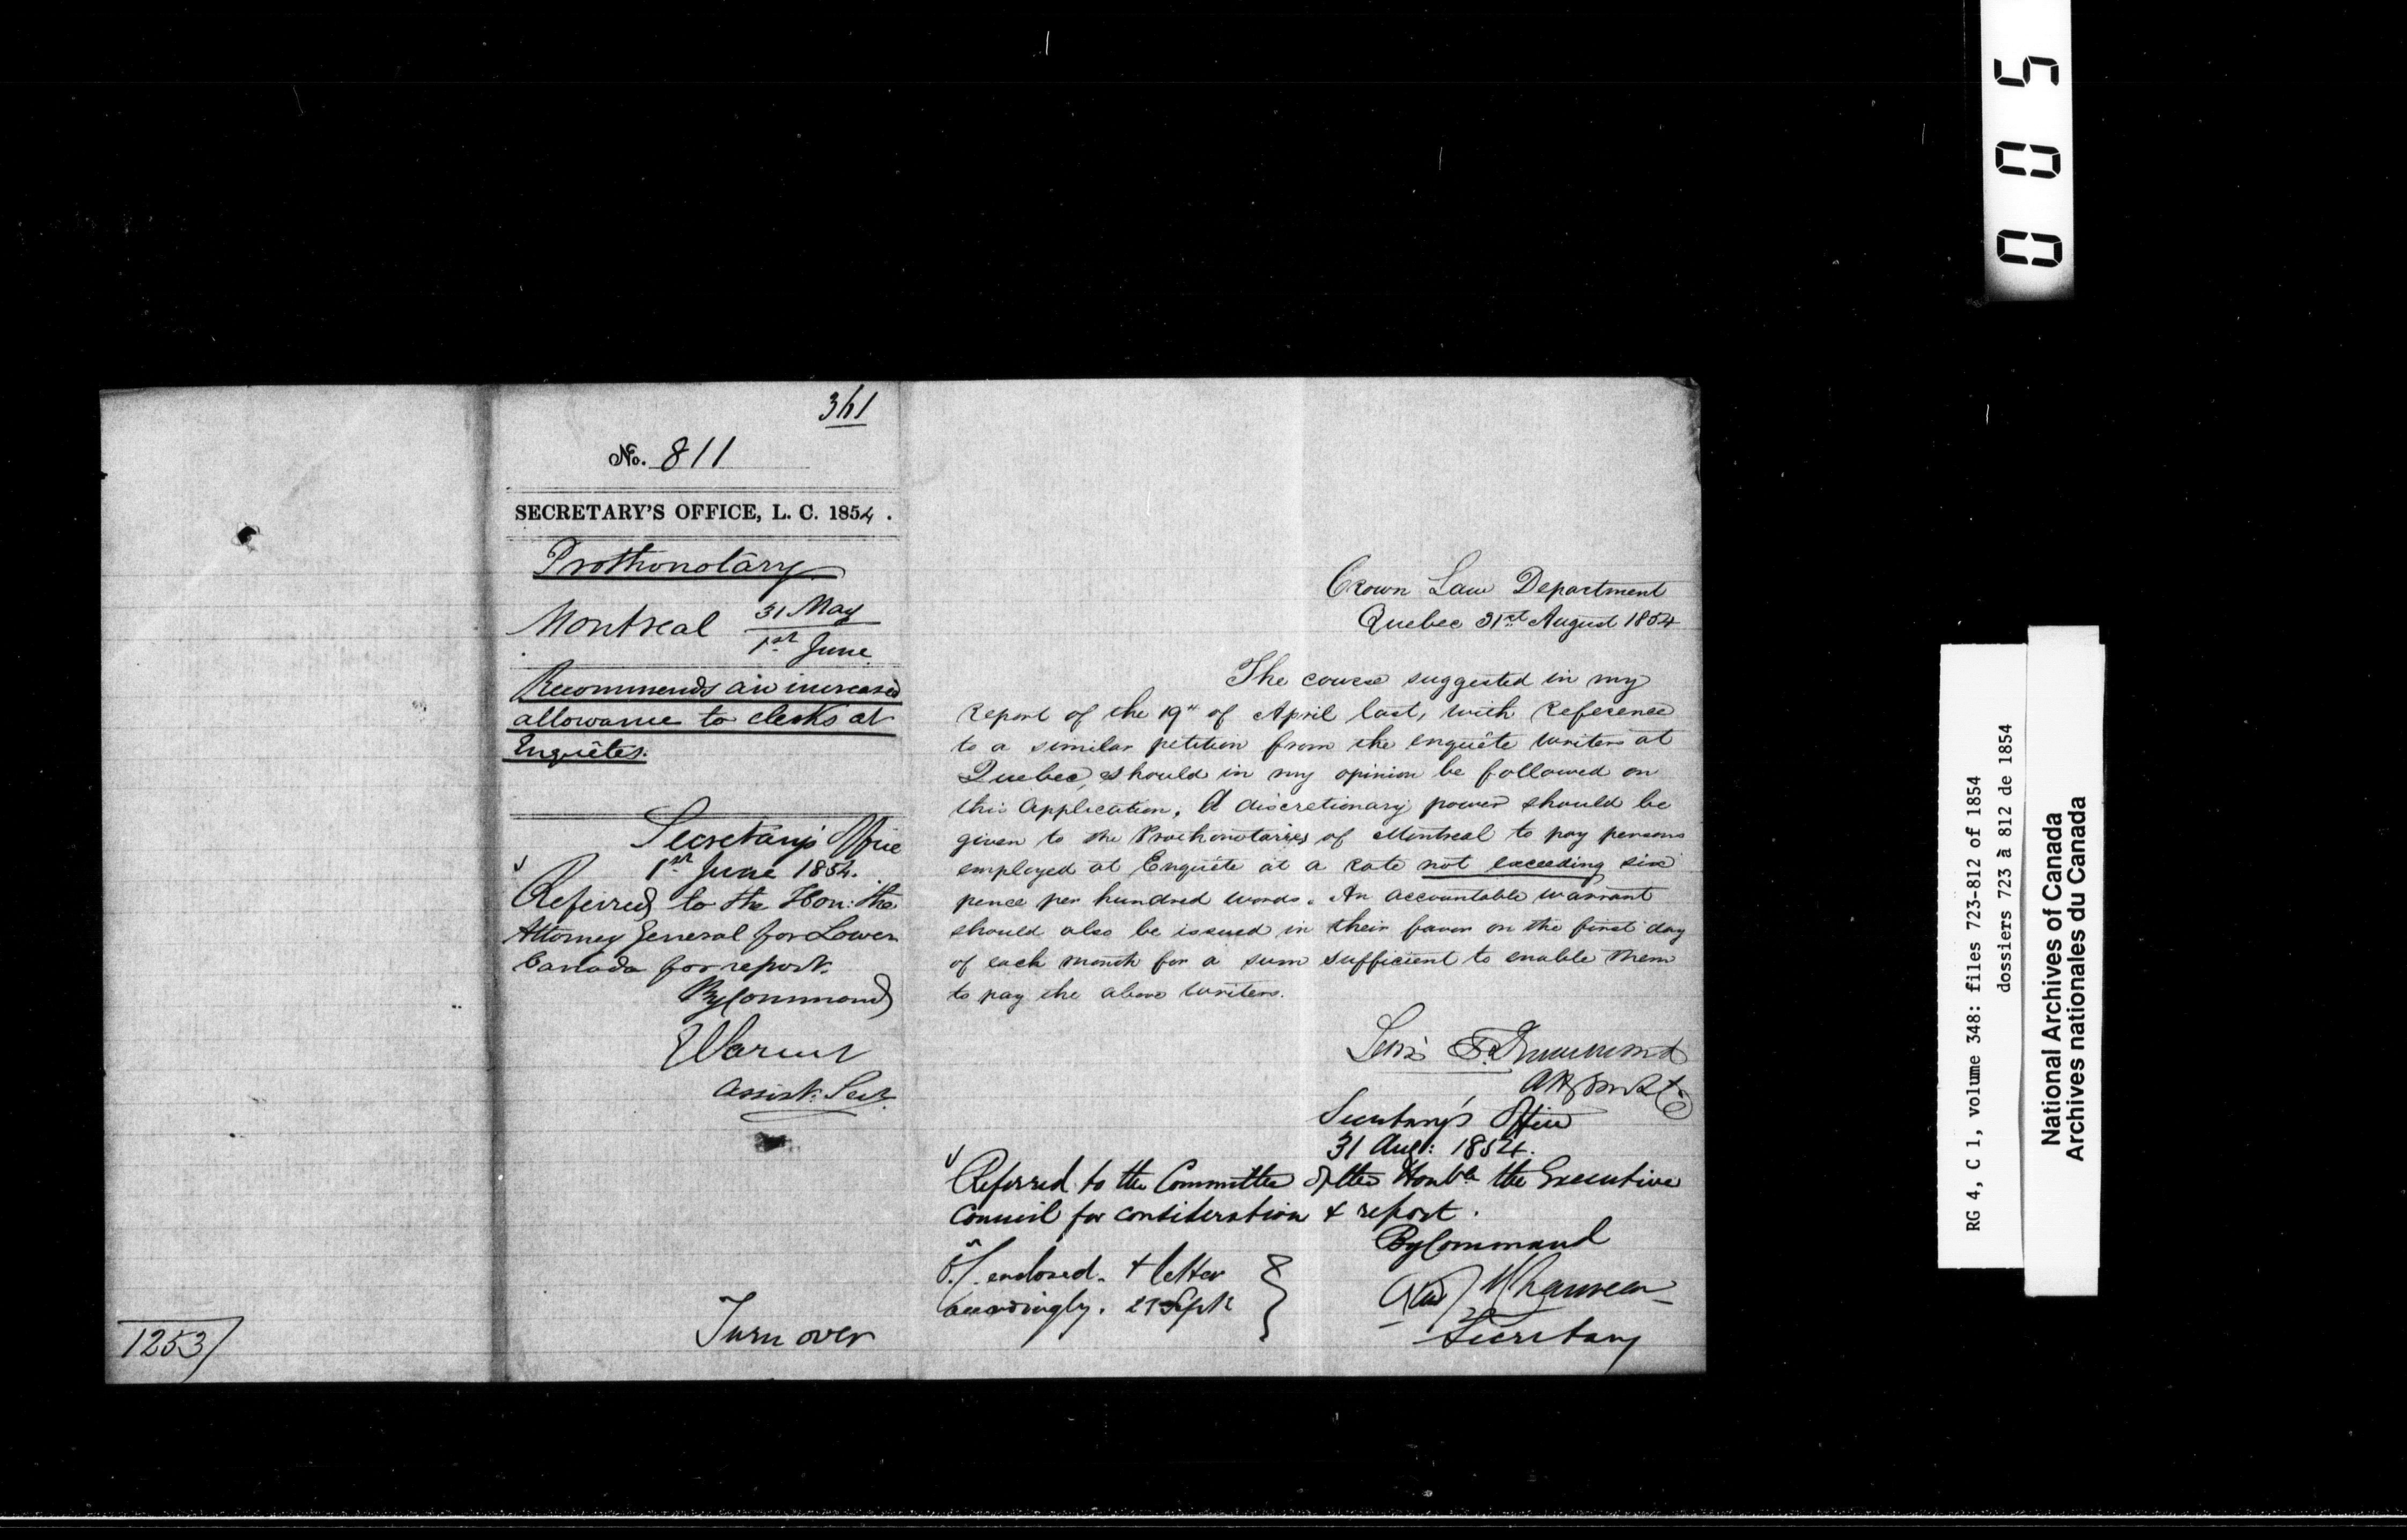 361
No. 811
SECRETARY'S OFFICE, L. C. 1854.
Prothonotary
Montreal 31 May
1st June
Recommends an increased
allowance to clerks at
Enquêtes.
Secretary's Office
1st June 1854.
Referred to the Hon: the
Attorney General for Lower
Canada for report.
By Command
Assist. Secy.
Turn over
1253
Crown Law Department
Quebec 31st August 1854
The course suggested in my
Report of the 19th of April last, with Reference
to a similar petition from the enquête writers at
Quebec, should in my opinion be followed on
this Application, A discretionary power should be
given to the Prothonotaries of Montreal to pay persons
employed at Enquête at a rate not exceeding six
pence per hundred words. An accountable warrant
should also be issued in their favor on the first day
of each month for a sum sufficient to enable them
to pay the above writers.
Lewis T. Drummond
Secretary's Office
31 Aug: 1854.
Referred to the Committee of the Honble the Executive
Council for consideration & report.
By Command
enclosed. & letter
accordingly. 27 Sept
Chauveau
Secretary
005
RG 4, C 1, volume 348: files 723-812 of 1854
dossiers 723 à 812 de 1854
National Archives of Canada
Archives nationales du Canada